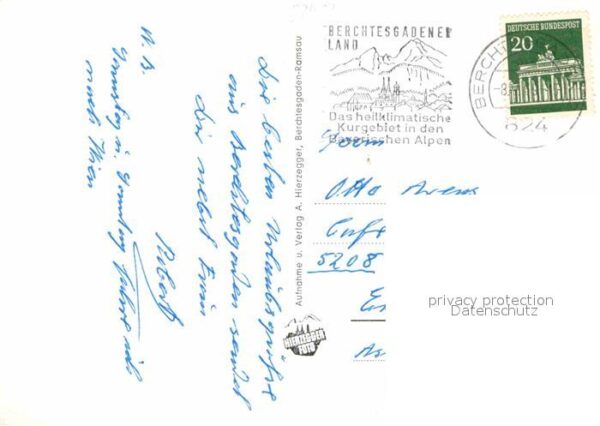 BERCHTESGADENER
LAND
Das heilklimatische
Kurgebiet in den
Bayerischen Alpen
DEUTSCHE BUNDESPOST
20
BERCHT
-8.
824
Die besten Urlaubsgrüße
aus Berchtesgaden sendet
dir nebst Frau
Robert
N. B.
Samstag u. Sonntag fahre ich
nach Wien
Aufnahme u. Verlag A. Hierzegger, Berchtesgaden-Ramsau
HIERZEGGER
FOTO
Otto
5208
privacy protection
Datenschutz